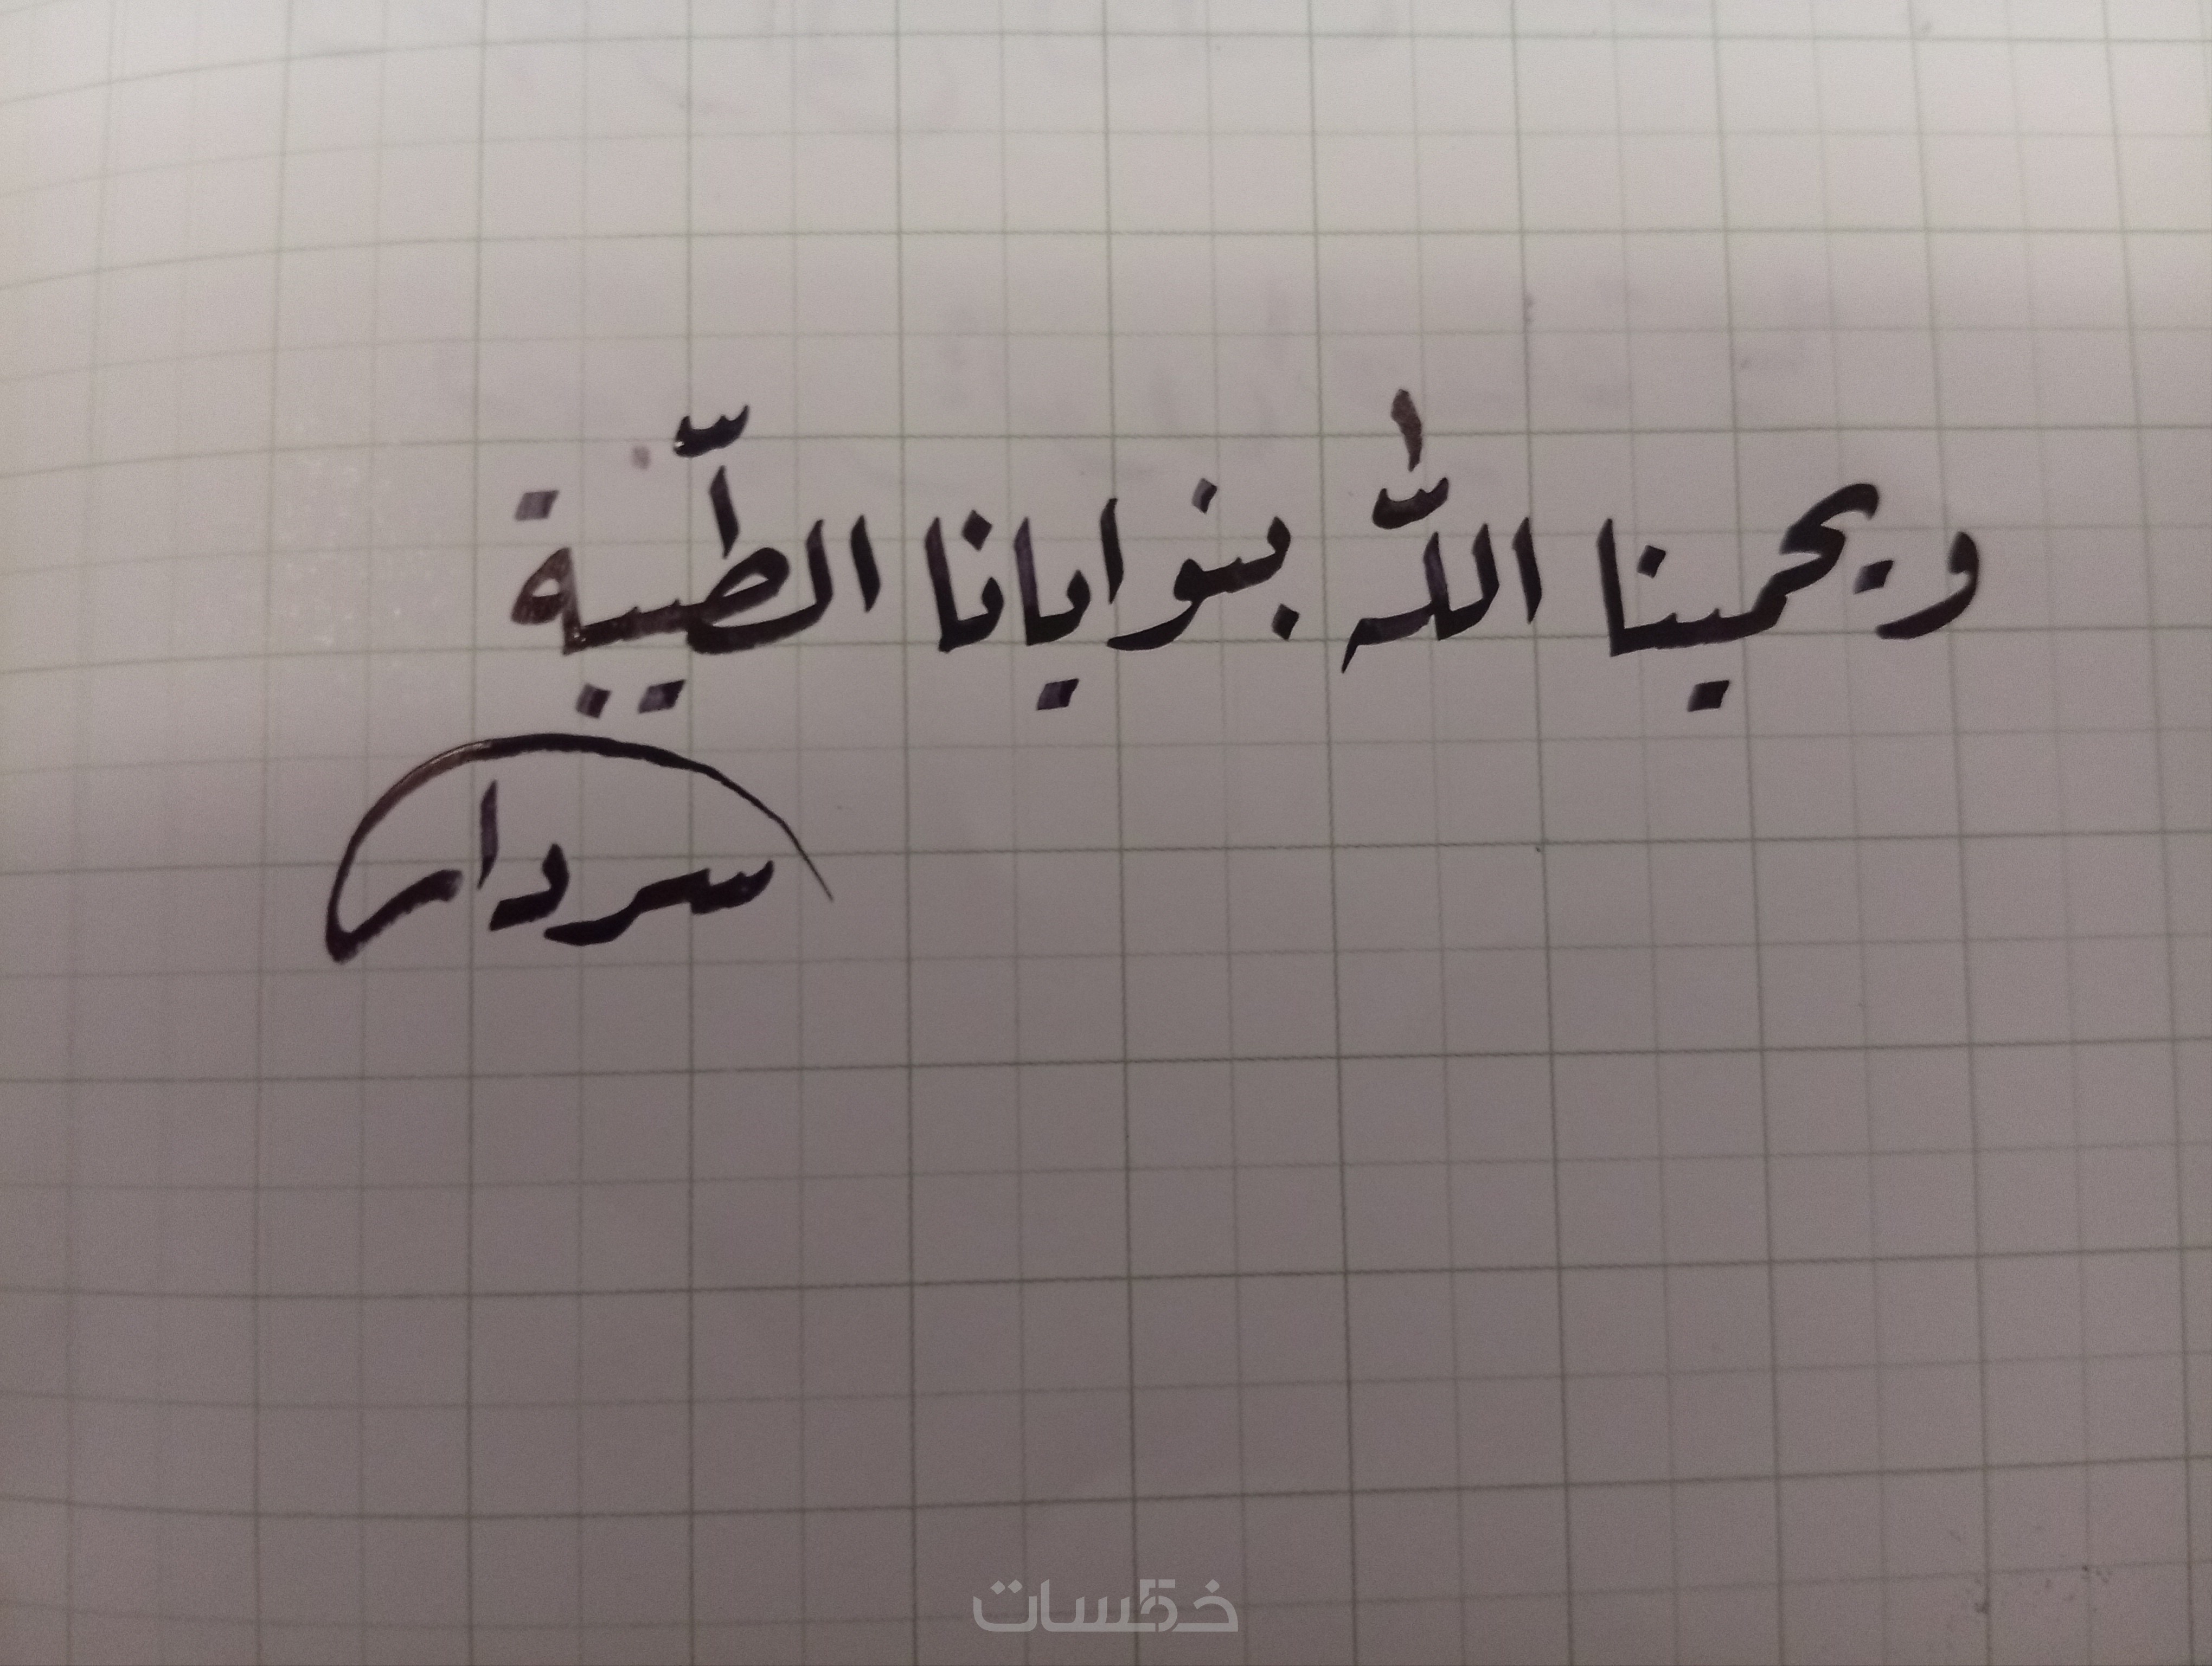 ويحمينا اللّٰه بنوايانا الطّيبة
سردار
خمسات